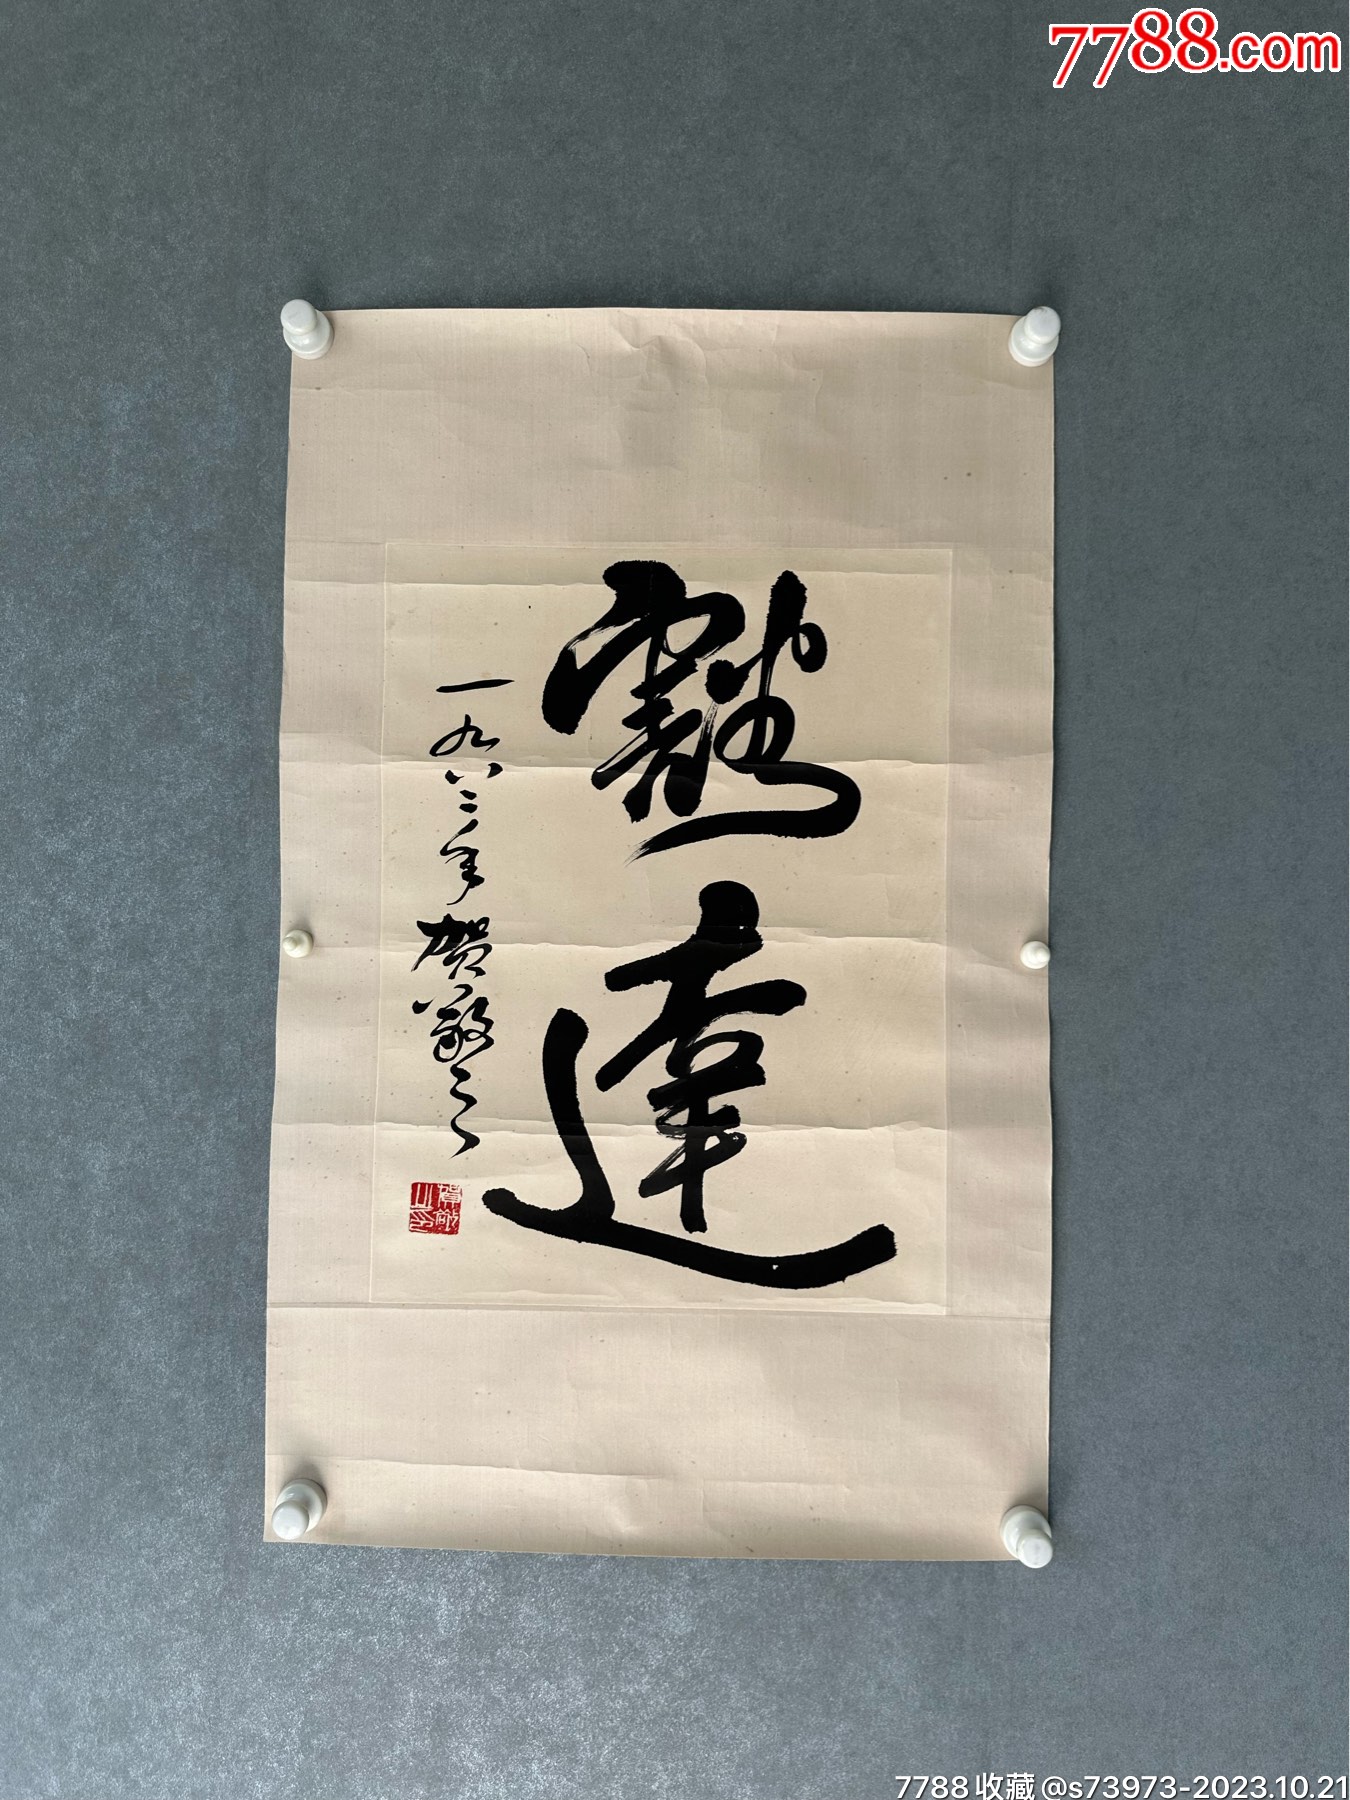 7788.com
豁達
一九八二年贺敬之
賀敬之印
7788收藏@s73973-2023.10.21